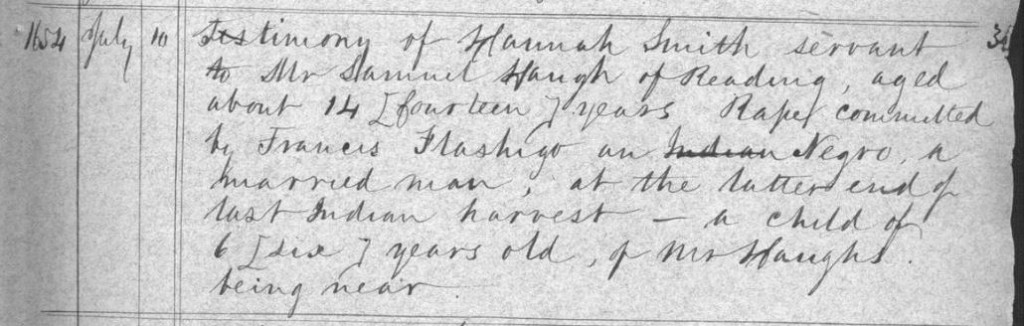 1654 July 10 Testimony of Hannah Smith servant
to Mr Samuel Haugh of Reading, aged
about 14 [fourteen] years Rape committed
by Francis Flashigo an Indian Negro, a
married man, at the latter end of
last Indian harvest – a child of
6 [six] years old, of Mr Haughs.
being near